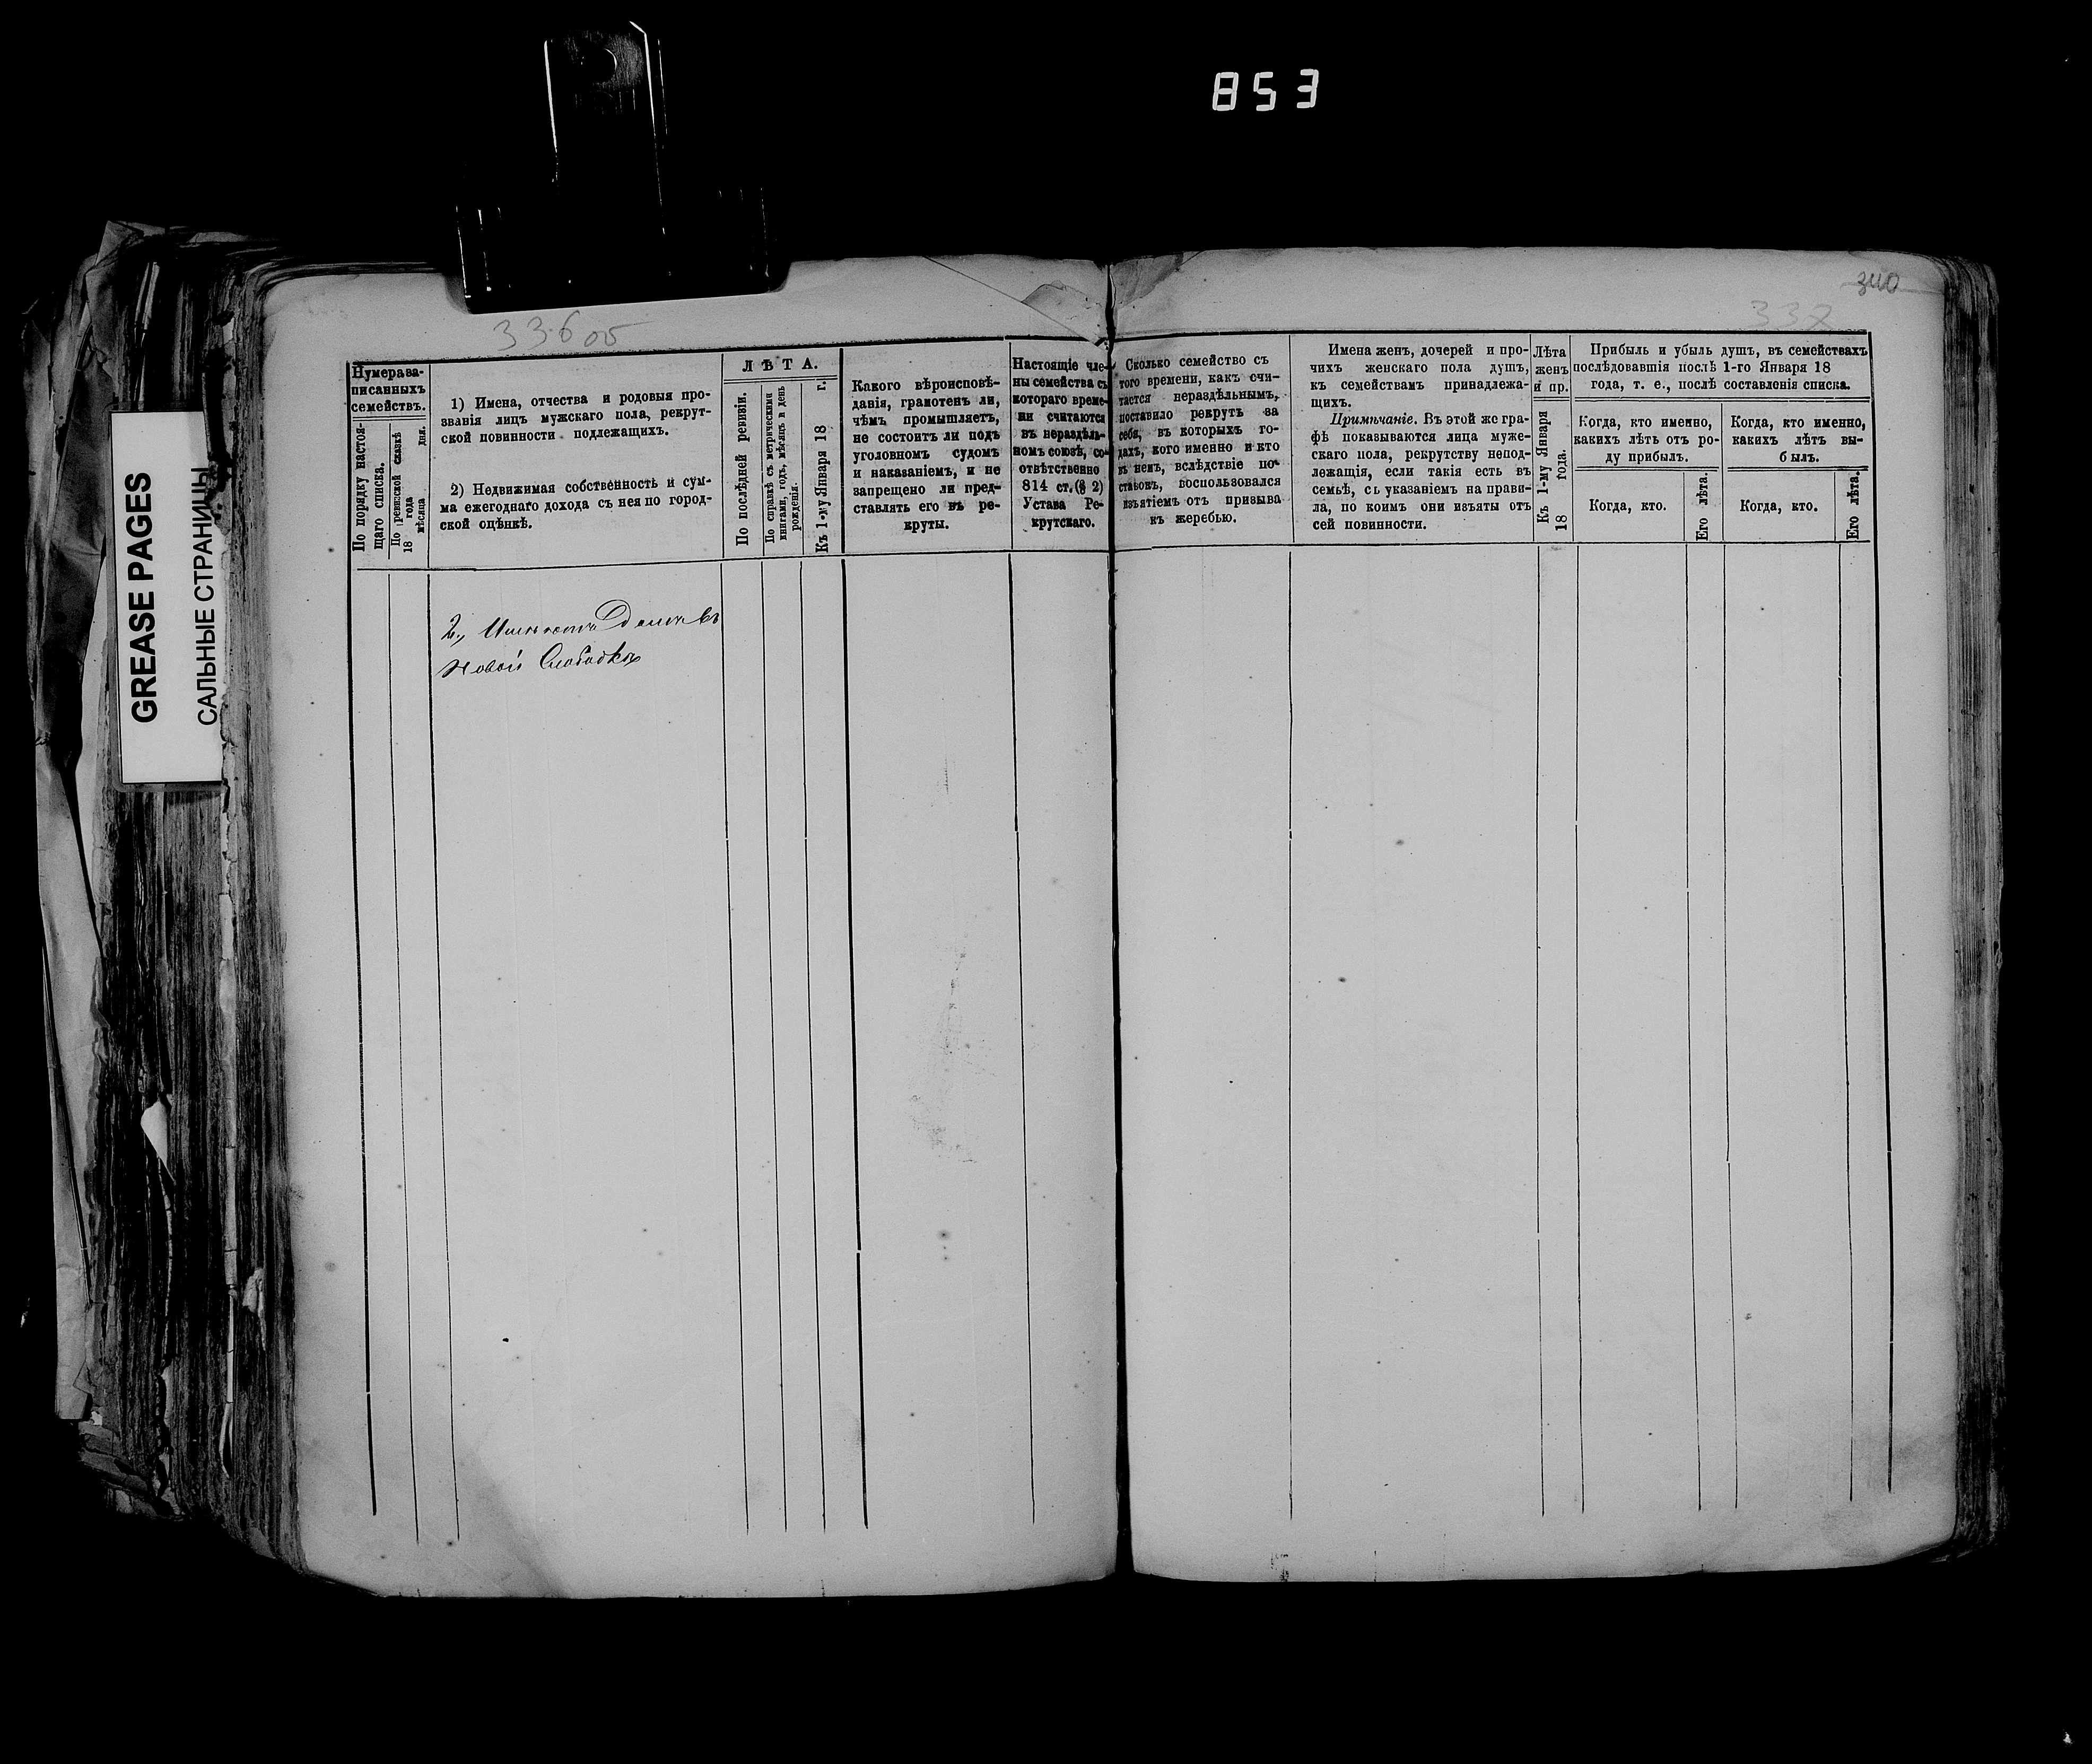 853
340
337
336 об
GREASE PAGES
САЛЬНЫЕ СТРАНИЦЫ
Нумера за-
писанныхъ
семействъ.
По порядку настоя-
щаго списка.
По ревизской сказкѣ
18 года
мѣсяца дня.
1) Имена, отчества и родовыя про-
званія лицъ мужскаго пола, рекрут-
ской повинности подлежащихъ.
2) Недвижимая собственность и сум-
ма ежегоднаго дохода съ нея по город-
ской оцѣнкѣ.
ЛѢТА.
По послѣдней ревизіи.
По справкѣ съ метрическими
книгами, годъ, мѣсяцъ и день
рожденія.
Къ 1-му Января 18 г.
Какого вѣроисповѣ-
данія, грамотенъ ли,
чѣмъ промышляетъ,
не состоитъ ли подъ
уголовномъ судомъ
и наказаніемъ, и не
запрещено ли пред-
ставлять его въ ре-
круты.
Настоящіе чле-
ны семейства съ
котораго време-
ни считаются
въ нераздѣль-
номъ союзѣ, со-
отвѣтственно
814 ст. (§ 2)
Устава Ре-
крутскаго.
Сколько семейство съ
того времени, какъ счи-
тается нераздѣльнымъ,
поставило рекрутъ за
себя, въ которыхъ го-
дахъ, кого именно и кто
въ немъ, вслѣдствіе по-
становъ, воспользовался
изъятіемъ отъ призыва
къ жеребью.
Имена женъ, дочерей и про-
чихъ женскаго пола душъ,
къ семействамъ принадлежа-
щихъ.
Примѣчаніе. Въ этой же гра-
фѣ показываются лица муже-
скаго пола, рекрутству непод-
лежащія, если такія есть въ
семьѣ, съ указаніемъ на прави-
ла, по коимъ они изъяты отъ
сей повинности.
Лѣта
женъ
и пр.
Къ 1-му Января
18 года.
Прибыль и убыль душъ, въ семействахъ
послѣдовавшія послѣ 1-го Января 18
года, т. е., послѣ составленія списка.
Когда, кто именно,
какихъ лѣтъ отъ ро-
ду прибылъ.
Когда, кто.
Его лѣта.
Когда, кто именно,
какихъ лѣтъ вы-
былъ.
Когда, кто.
Его лѣта.
2., Имѣютъ Домъ въ
Новой Слободкѣ